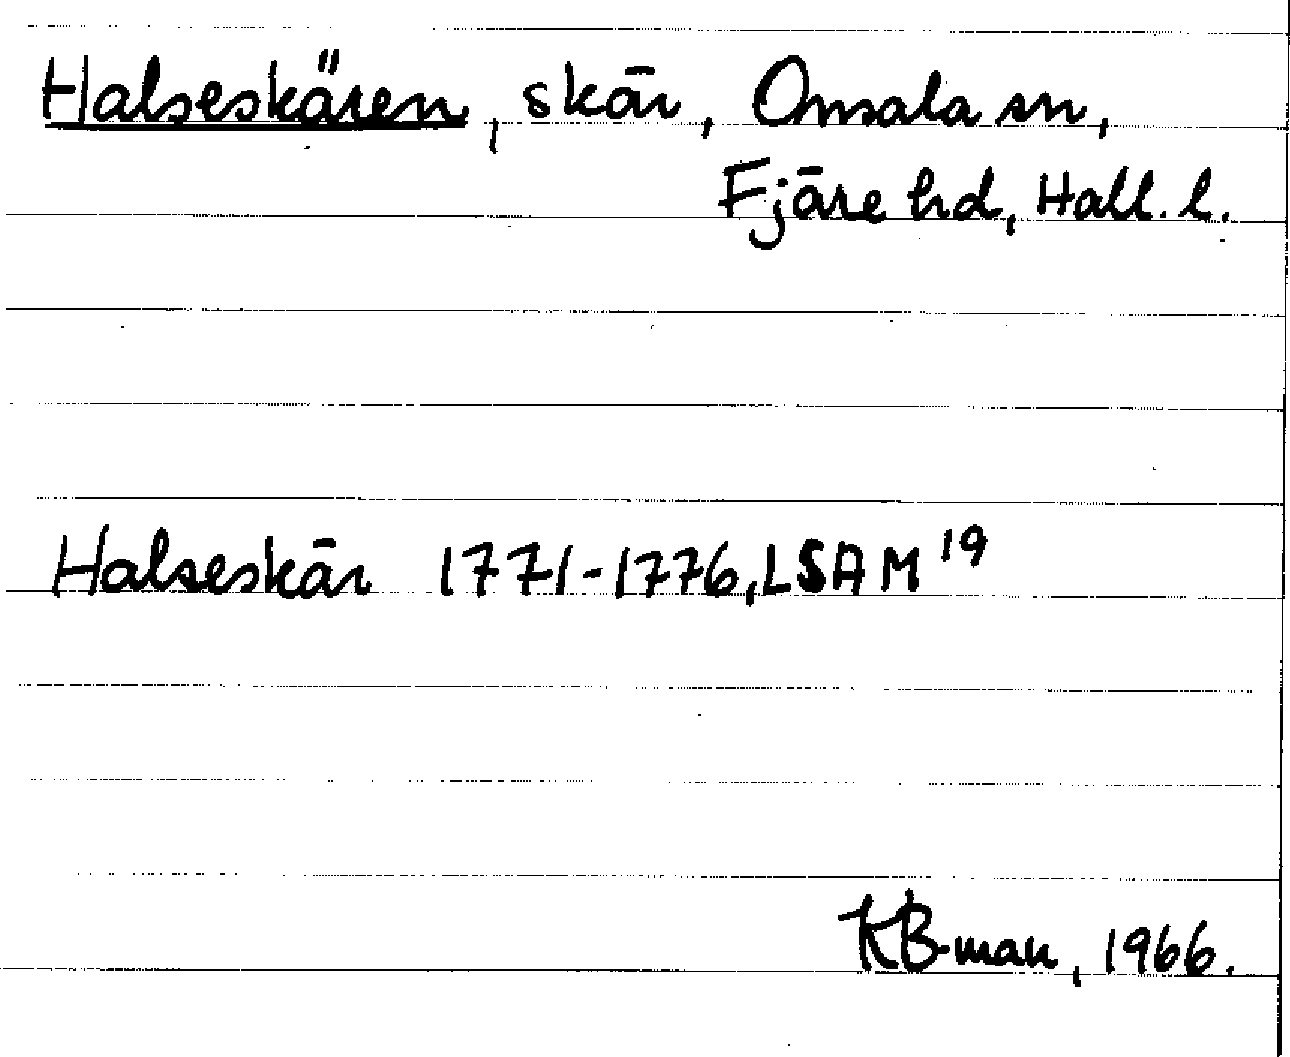 Halseskären, skär, Onsala sn,
Fjäre hd, Hall. l.
Halseskär 1771-1776, LSA M 19
KB-man, 1966.